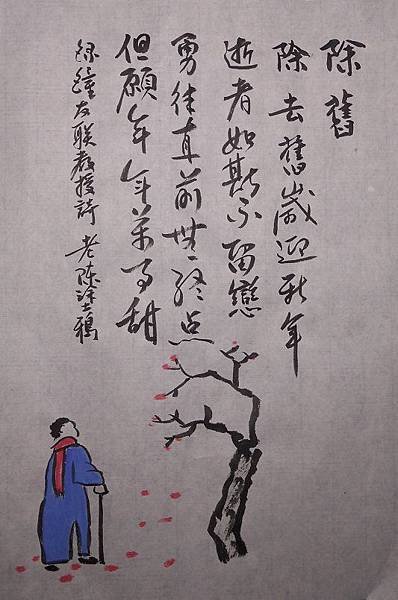 除舊
除去舊歲迎新年
逝者如斯不留戀
勇往直前無終点
但願年年萬事甜
錄鐘友联教授詩 老陈涂鴉